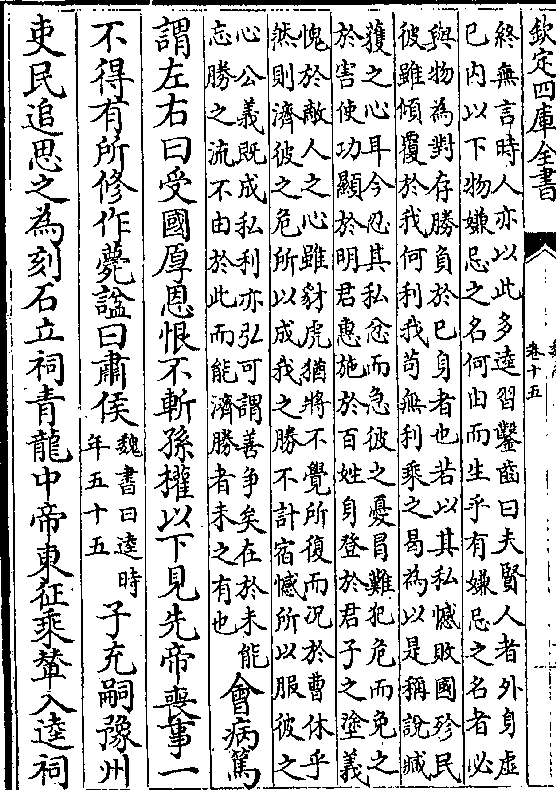 欽定四庫全書
卷十五
終無言時人亦以此多逵習鑿齒曰夫賢人者外身虛
已内以下物嫌忌之名何由而生乎有嫌忌之名者必
與物為對存勝負於已身者也若以其私憾敗國殄民
彼雖傾覆於我何利我苟無利乘之曷為以是稱說臧
獲之心耳今忍其私忿而急彼之憂冒難犯危而免之
於害使功顯於明君惠施於百姓身登於君子之塗義
愧於敵人之心雖豺虎猶將不覺所復而況於曹休乎
然則濟彼之危所以成我之勝不計宿憾所以服彼之
心公義既成私利亦弘可謂善爭矣在於未能
忘勝之流不由於此而能濟勝者未之有也
會病篤
謂左右曰受國厚恩恨不斬孫權以下見先帝喪事一
不得有所修作薨諡曰肅侯
魏書曰逵時
年五十五
子充嗣豫州
吏民追思之為刻石立祠青龍中帝東征乘輦入逵祠